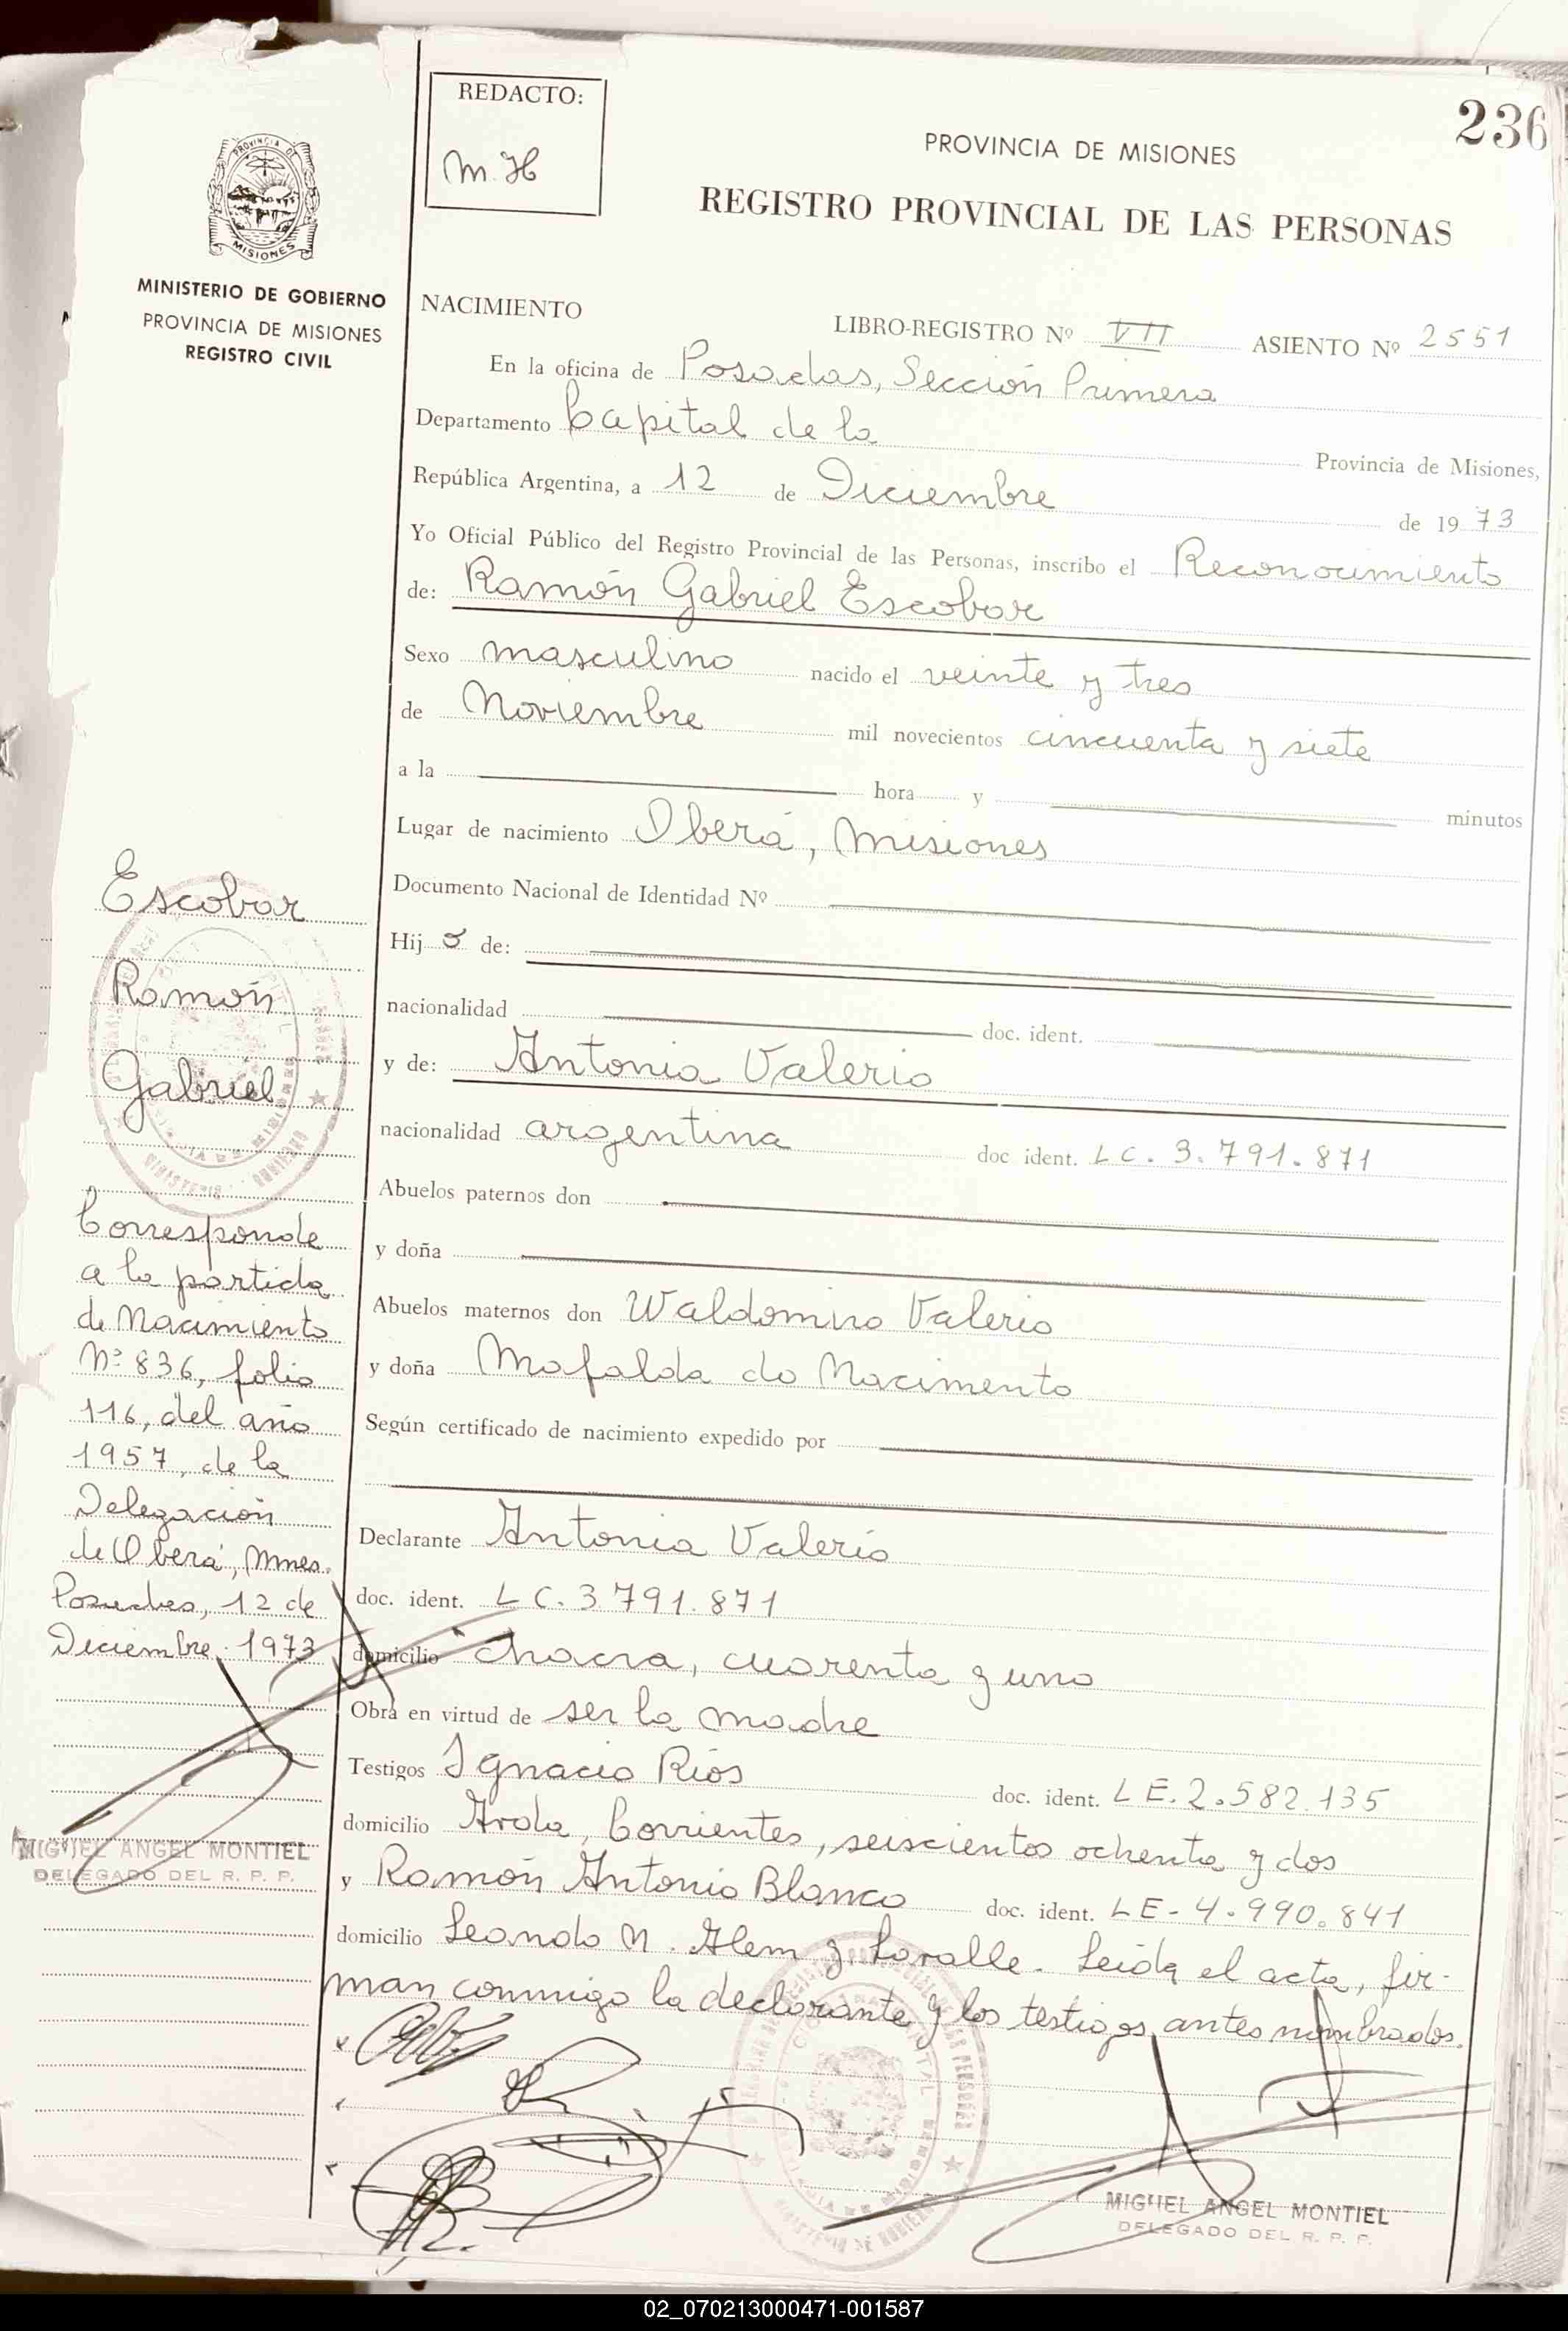 236
REDACTO:
M. H
PROVINCIA DE MISIONES
REGISTRO PROVINCIAL DE LAS PERSONAS
PROVINCIA DE
MISIONES
MINISTERIO DE GOBIERNO
PROVINCIA DE MISIONES
REGISTRO CIVIL
NACIMIENTO
LIBRO-REGISTRO Nº VII ASIENTO Nº 2551
En la oficina de Posadas, Sección Primera
Departamento Capital de la Provincia de Misiones,
República Argentina, a 12 de Diciembre de 1973
Yo Oficial Público del Registro Provincial de las Personas, inscribo el Reconocimiento
de: Ramón Gabriel Escobar
Sexo masculino nacido el veinte y tres
de Noviembre mil novecientos cincuenta y siete
a la hora y minutos
Lugar de nacimiento Oberá, Misiones
Documento Nacional de Identidad Nº
Hijo de:
nacionalidad doc. ident.
y de: Antonia Valerio
nacionalidad argentina doc ident. LC. 3.791.871
Abuelos paternos don
y doña
Abuelos maternos don Waldomiro Valerio
y doña Mafalda do Nacimento
Según certificado de nacimiento expedido por
Declarante Antonia Valerio
doc. ident. LC. 3.791.871
domicilio chacra, cuarenta y uno
Obra en virtud de ser la madre
Testigos Ignacio Ríos doc. ident. LE. 2.582.135
domicilio Avda, Corrientes, seiscientos ochenta y dos
y Ramón Antonio Blanco doc. ident. LE-4.990.841
domicilio Leando N. Alem y Lavalle. Leída el acta, fir-
man conmigo la declarante y los testigos antes nombrados.
MIGUEL ANGEL MONTIEL
DELEGADO DEL R. P. P.
Escobar
Ramón
Gabriel
Corresponde
a la partida
de Nacimiento
Nº 836, folio
116, del año
1957, de la
Delegación
de Oberá, Mnes.
Posadas, 12 de
Diciembre 1973
MIGUEL ANGEL MONTIEL
DELEGADO DEL R. P. P.
02_070213000471-001587